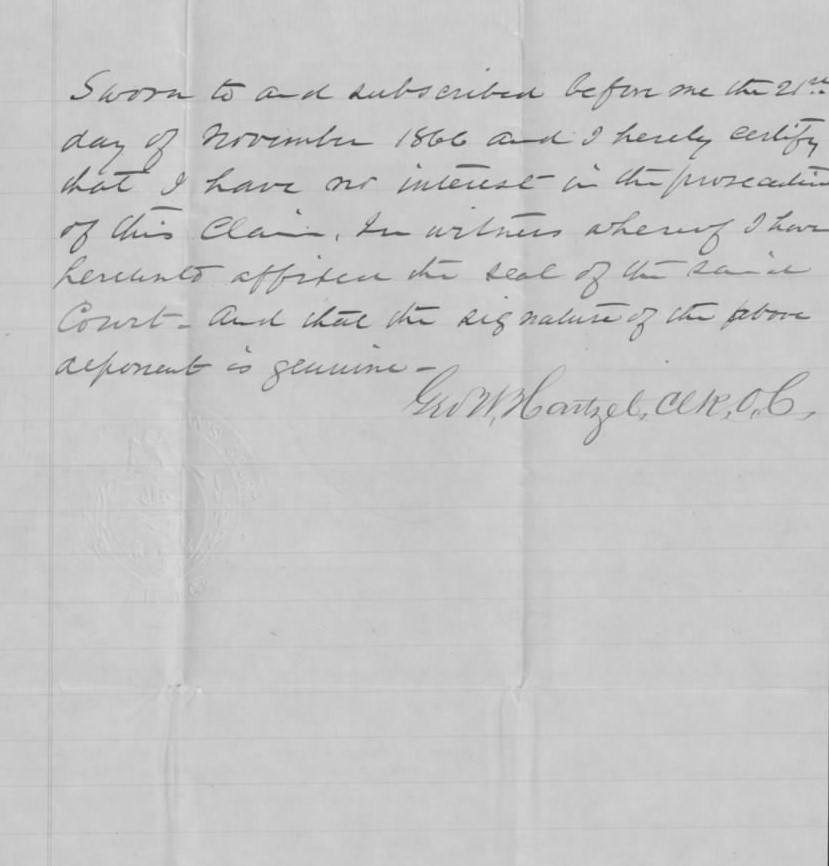 Sworn to and subscribed before me the 21st
day of November 1866 and I hereby certify
that I have no interest in the prosecution
of this Claim. In witness whereof I have
hereunto affixed the seal of the said
Court - And that the signature of the above
deponent is genuine -
Geo W. Hartzel, Clk, O, C,